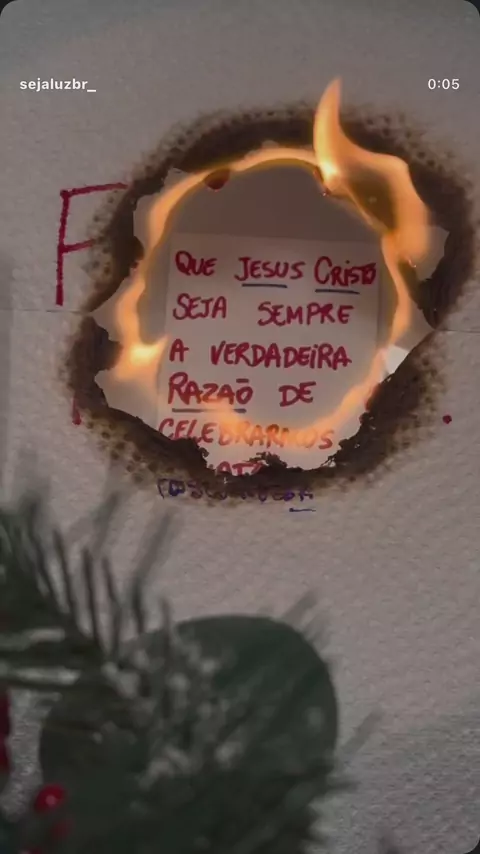 sejaluzbr_
0:05
F
QUE JESUS CRISTO
SEJA SEMPRE
A VERDADEIRA
RAZAÕ DE
CELEBRARMOS